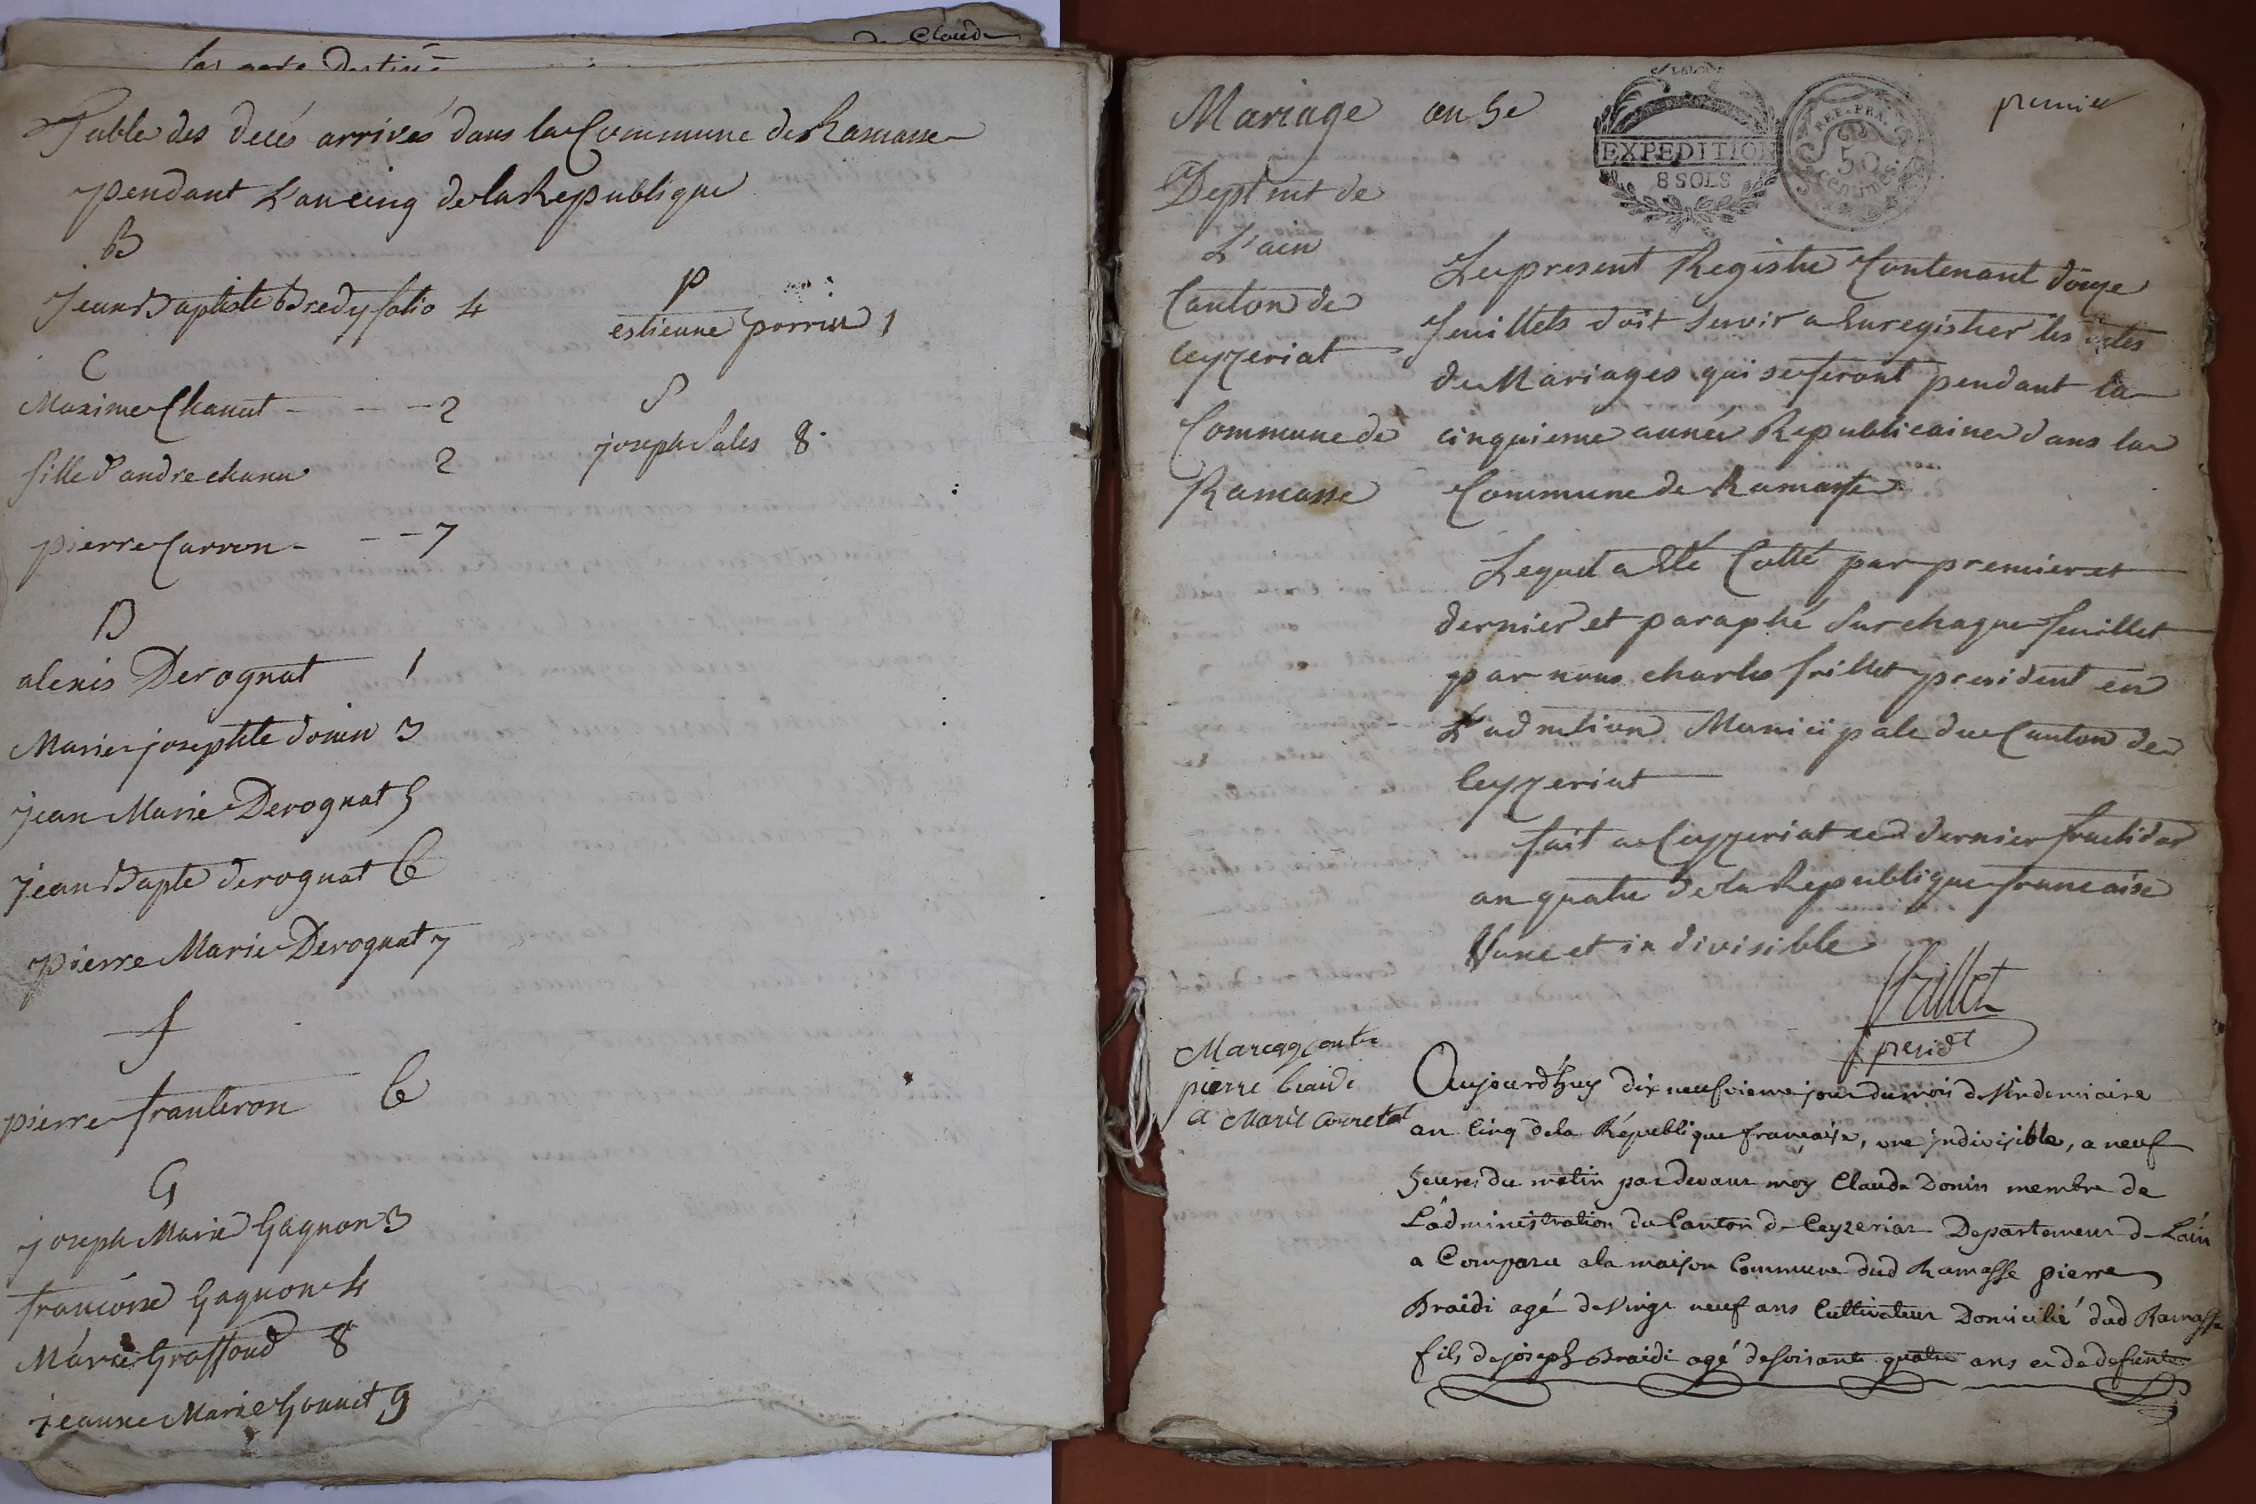 de Claude
Table des decés arrivés dans la Commune de Ramasse
pendant L'an cinq de la Republique
B
jean Baptiste Bredy folio 4
C
Maxime Chanut - - - - 2
fille d'andre chanu 2
pierre Carron - - - 7
D
alexis Derognat 1
Marie josephte donin 3
jean Marie Derognat 5
jean Bapte derognat 6
pierre Marie Derognat 7
f
pierre franteron 6
G
joseph Marie Gagnon 3
francoise Gagnon 4
Marie Graffoud 8
jeanne Marie Gonnet 9
P
estienne perrin 1
S
joseph Sales 8
Mariage an 5e
premier
EXPEDITION
8 SOLS
REP. FRA.
50
centimes
Deptmt de
L'ain
Canton de
Ceyzeriat
Commune de
Ramasse
Le present Registre Contenant douze
feuillets doit servir a Enregistrer les actes
de Mariages qui se feront pendant la
cinquieme année Republicaine dans la
Commune de Ramasse
Lequel a Eté Cotté par premier et
dernier et paraphé sur chaque feuillet
par nous charles frillet president en
L'admtion Municipale du Canton de
Ceyzeriat
fait a Ceyzeriat ce dernier fructidor
an quatre de la Republique francaise
Vune et indivisible
frillet
presidt
Mareage entre
pierre braidi
a Marie Corretel
Aujourd'huy dix neufvieme jour du mois de Vindemiaire
an Cinq de la République française, une indivisible, a neuf
heures du matin par devant moy Claude Donin membre de
L'administration du Canton de Ceyzeriat Departement de L'ain
a Comparu a la maison Commune dud Ramasse pierre
Braidi agé de Vingt neuf ans Cultivateur Domicilié dud Ramasse
fils de joseph Braidi agé de soisante quatre ans et de defunte